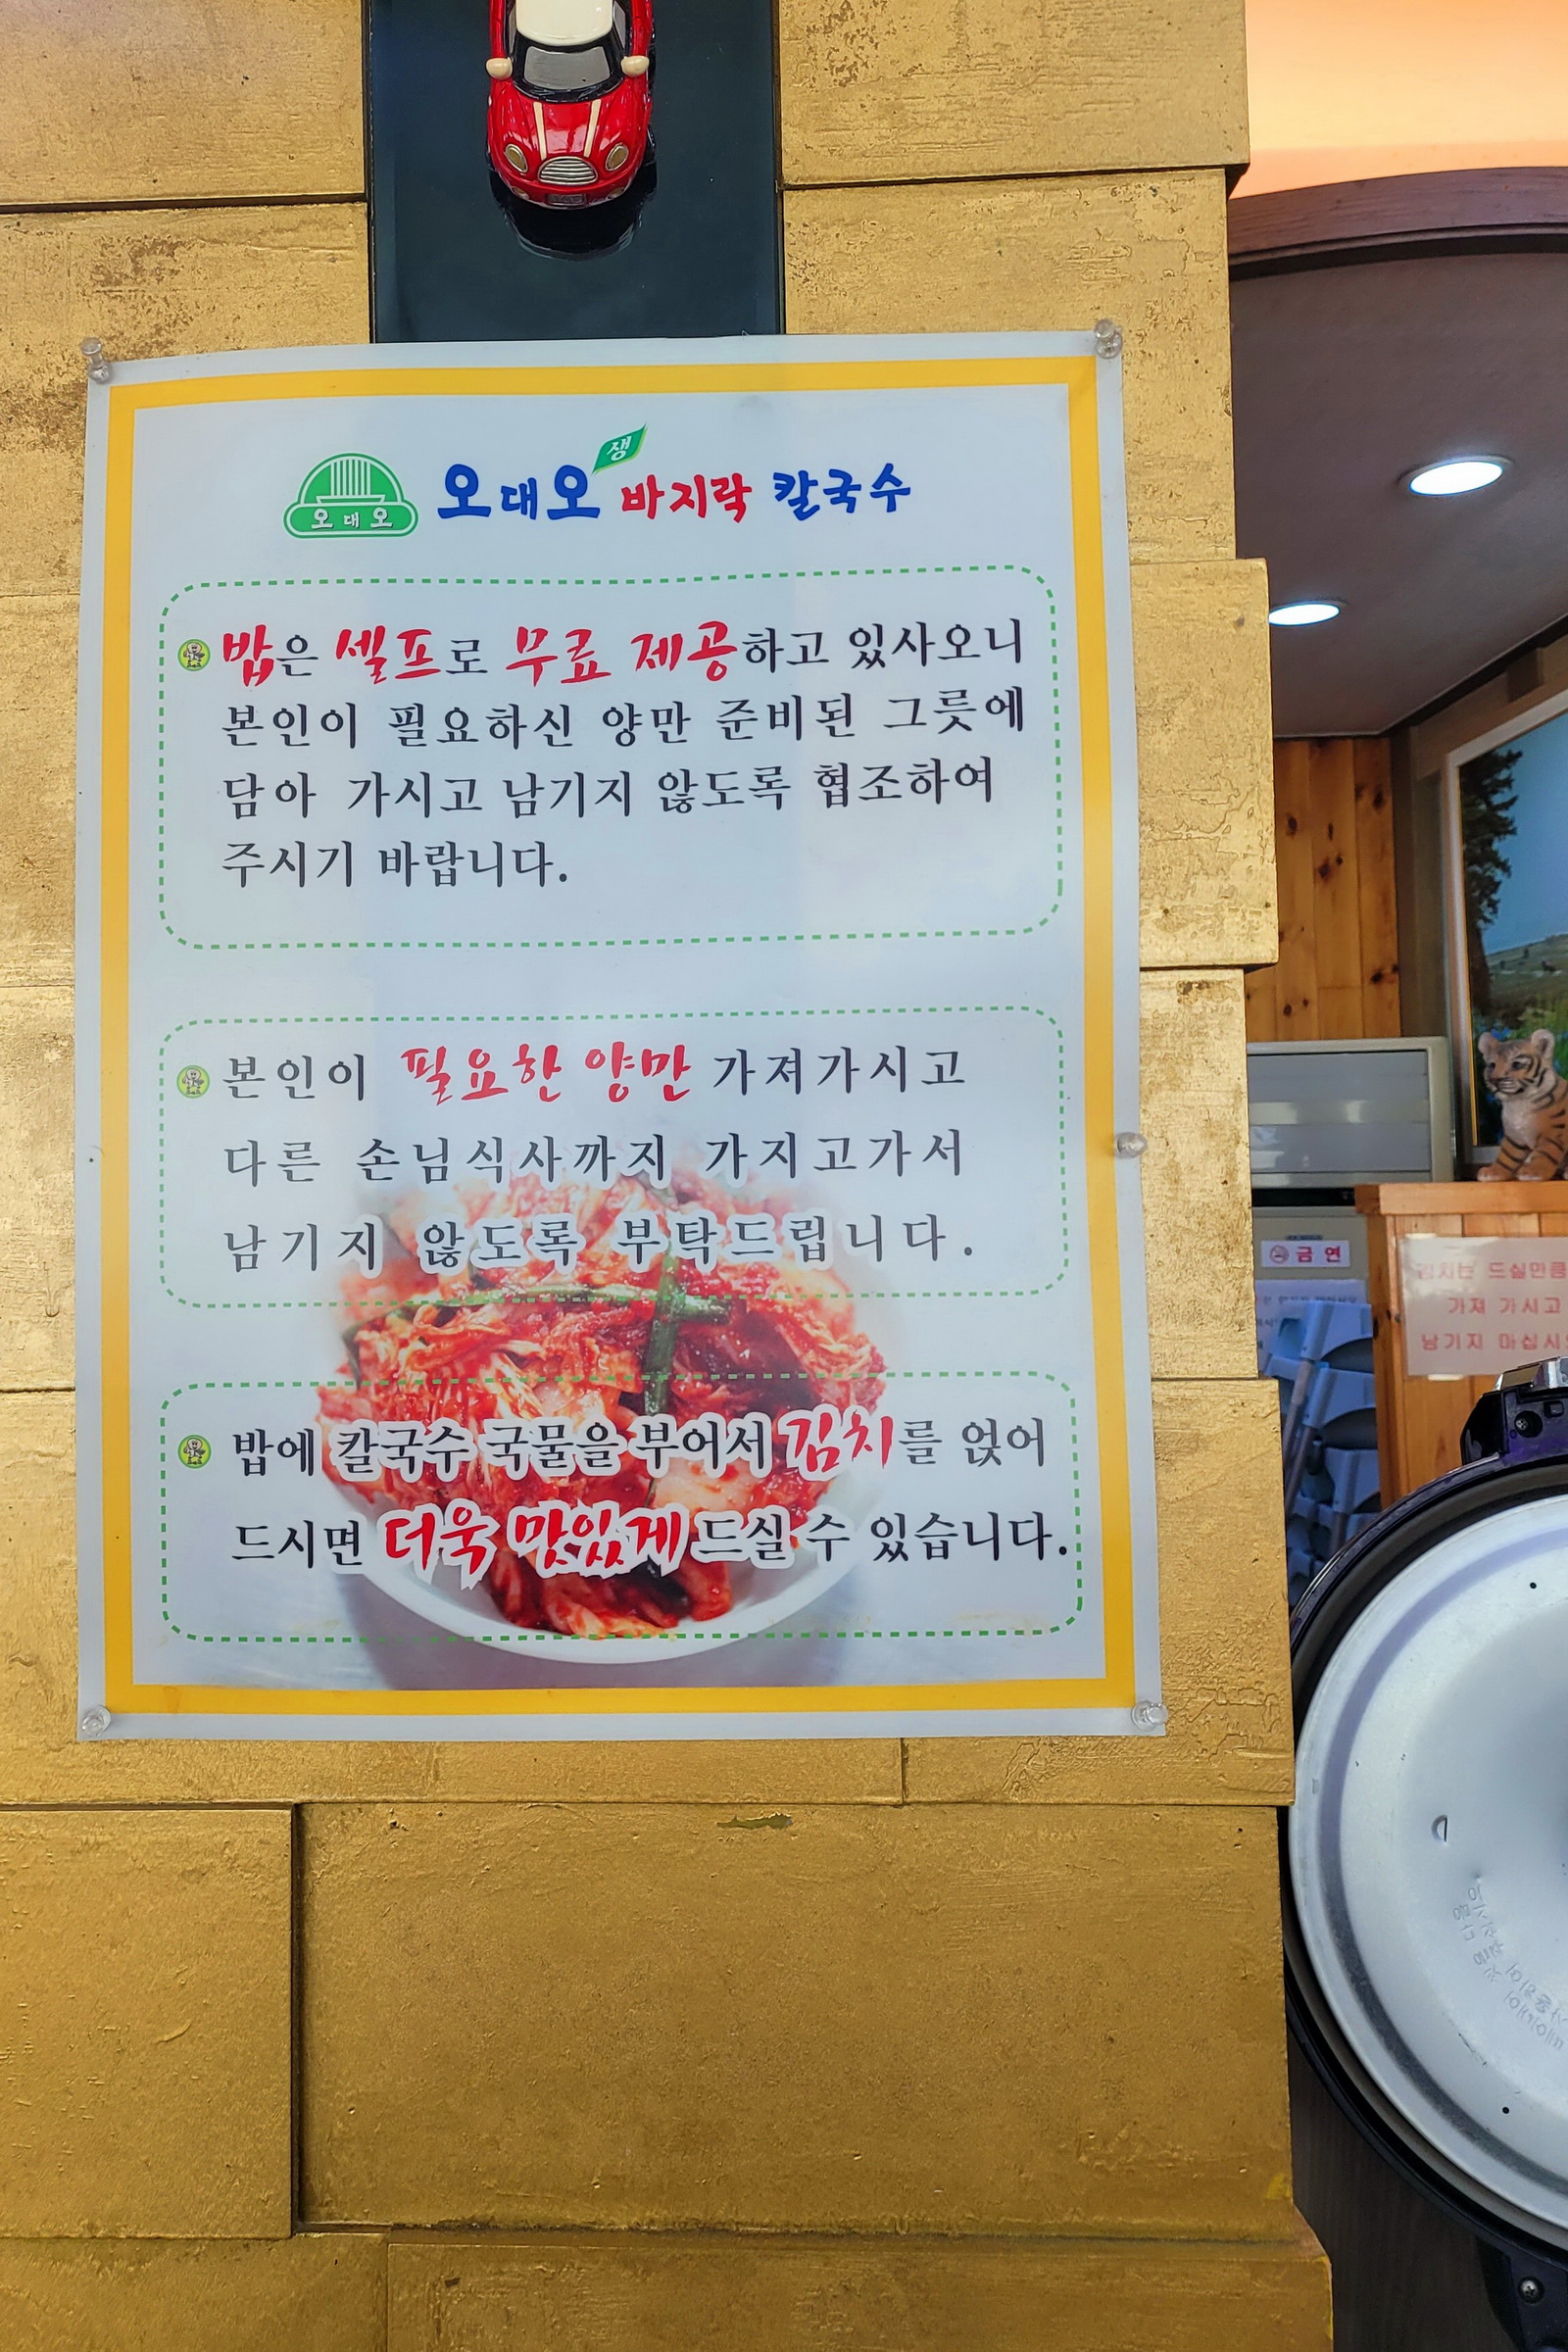 오대오
오대오 생 바지락 칼국수
밥은 셀프로 무료 제공하고 있사오니
본인이 필요하신 양만 준비된 그릇에
담아 가시고 남기지 않도록 협조하여
주시기 바랍니다.
본인이 필요한 양만 가져가시고
다른 손님식사까지 가지고가서
남기지 않도록 부탁드립니다.
밥에 칼국수 국물을 부어서 김치를 얹어
드시면 더욱 맛있게 드실 수 있습니다.
금연
김치는 드실만큼
가져 가시고
남기지 마십시